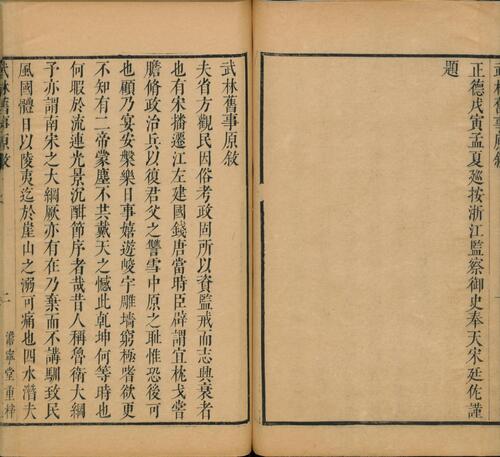 武林舊事原敘
正德戊寅孟夏廵按浙江監察御史奉天宋廷佐謹
題
武林舊事原敘
夫省方觀民因俗考政固所以資監戒而志興衰者
也有宋播遷江左建國錢唐當時臣辟謂宜枕戈嘗
膽脩政治兵以復君父之讐雪中原之耻惟恐後可
也顧乃宴安槃樂日事嬉遊峻宇雕墻窮極嗜欲更
不知有二帝蒙塵不共戴天之憾此乾坤何等時也
何暇於流連光景沉酣節序者哉昔人稱魯衛大綱
予亦謂南宋之大綱厥亦有在乃棄而不講馴致民
風國體日以陵夷迄於崖山之溺可痛也四水潛夫
武林舊事原敘
二
㵎寧堂重梓